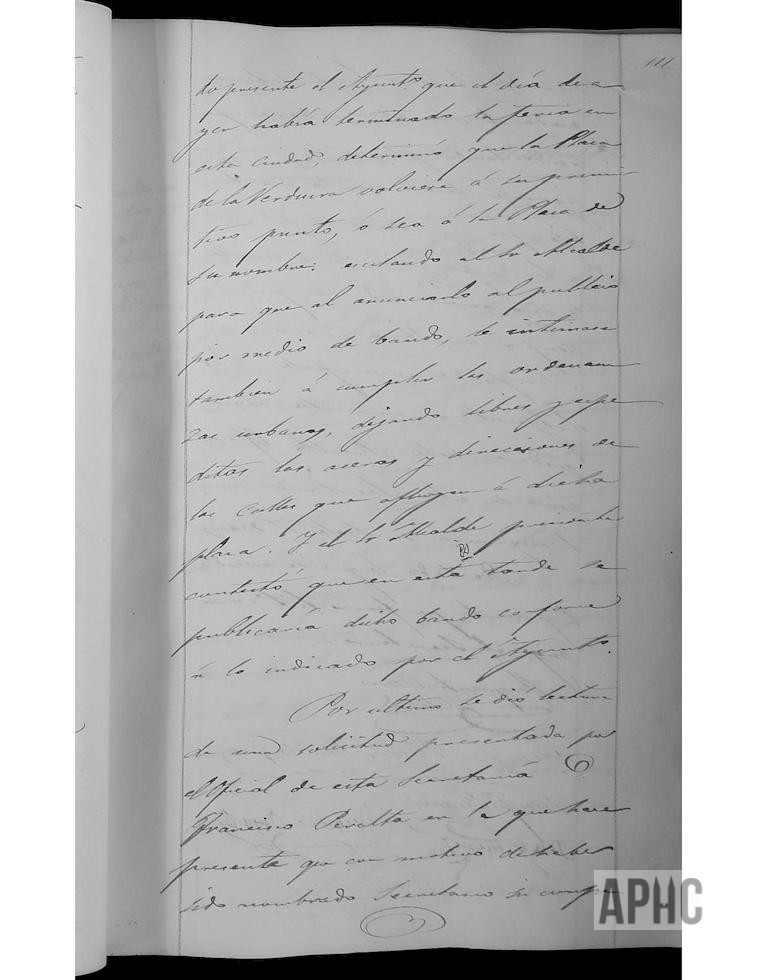 111
to presente el Ayunto que el día de a
yer habia terminado la feria en
esta Ciudad, determinó que la Plaza
de la Verdura volviese á su primi-
tivo punto, ó sea á la Plaza de
su nombre: escitando al Sr Alcalde
para que al anunciarlo al publico
por medio de bando, se intimase
tambien á cumplir las ordenan
zas urbanas, dejando libres y espe
ditas las aceras y direcciones de
las Calles que afluyen á dicha
plaza. Y el Sr Alcalde presidente
contestó que en esta tarde se
publicaria dicho bando conforme
á lo indicado por el Ayunto.
Por ultimo se dió lectura
de una solicitud presentada por
el Oficial de esta Secretaria
Francisco Peralta en la que hace
presente que con motivo de haber
sido nombrado Secretario in
APHC